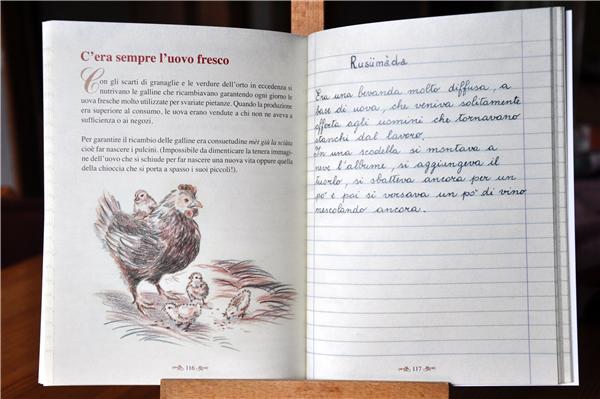 C'era sempre l'uovo fresco
Con gli scarti di granaglie e le verdure dell'orto in eccedenza si
nutrivano le galline che ricambiavano garantendo ogni giorno le
uova fresche molto utilizzate per svariate pietanze. Quando la produzione
era superiore al consumo, le uova erano vendute a chi non ne aveva a
sufficienza o ai negozi.
Per garantire il ricambio delle galline era consuetudine mèt giò la sciüsa
cioè far nascere i pulcini. (Impossibile da dimenticare la tenera immagi-
ne dell'uovo che si schiude per far nascere una nuova vita oppure quella
della chioccia che si porta a spasso i suoi piccoli!).
116
Rusümàda
Era una bevanda molto diffusa, a
base di uova, che veniva solitamente
offerta agli uomini che tornavano
stanchi dal lavoro.
In una scodella si montava a
neve l'albume, si aggiungeva il
tuorlo, si sbatteva ancora per un
po' e poi si versava un po' di vino
mescolando ancora.
117